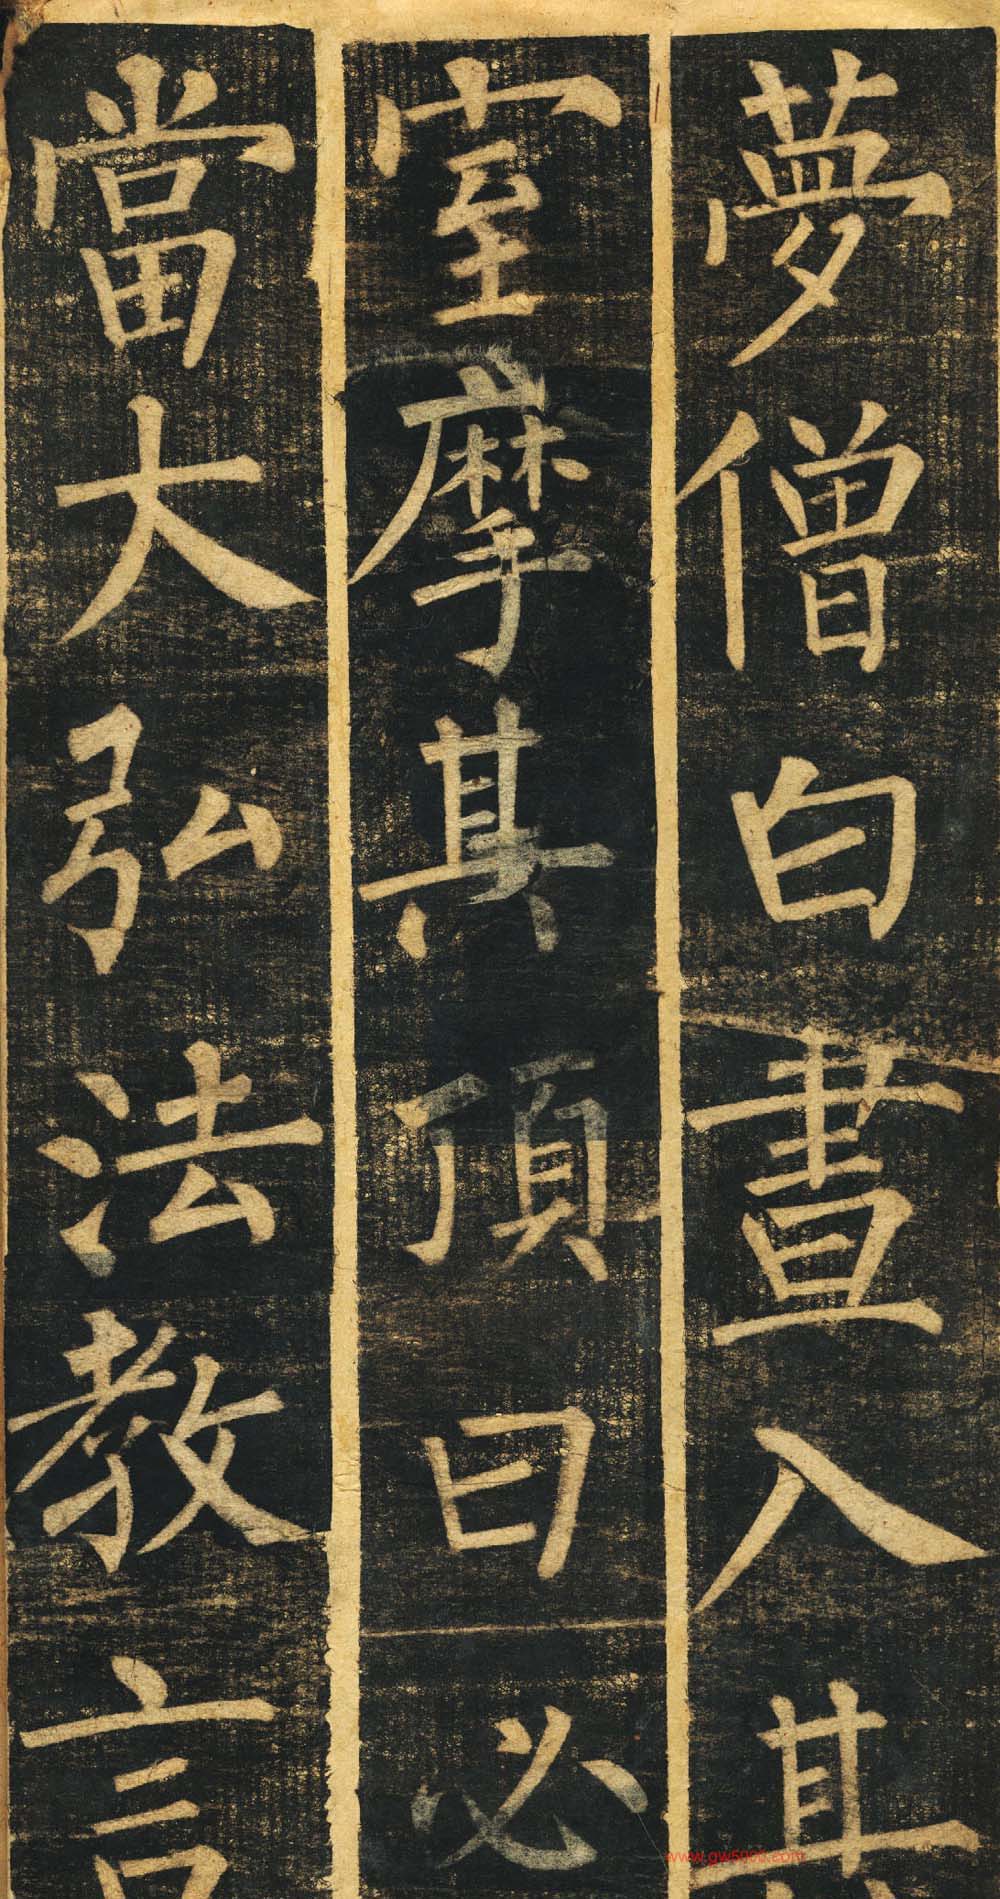 夢僧白晝入其
室摩其頂曰必
當大弘法教言